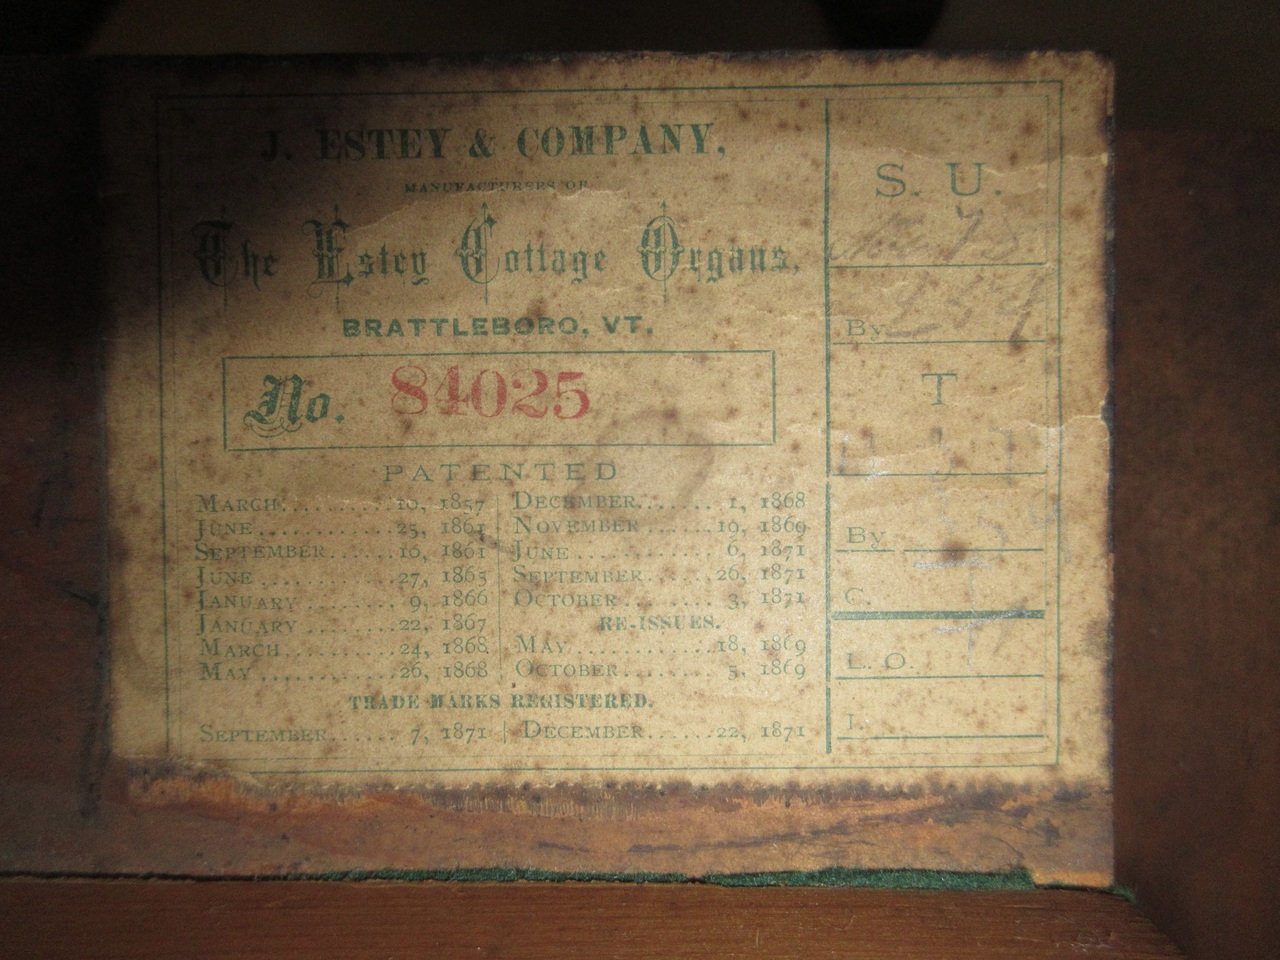 J. ESTEY & COMPANY,
MANUFACTURERS OF
The Estey Cottage Organs,
BRATTLEBORO, VT.
No. 84025
PATENTED
MARCH..........10, 1857
JUNE..............25, 1861
SEPTEMBER......16, 1861
JUNE..............27, 1865
JANUARY......... 9, 1866
JANUARY.........22, 1867
MARCH...........24, 1868
MAY...............26, 1868
DECEMBER....... 1, 1868
NOVEMBER.......19, 1869
JUNE............... 6, 1871
SEPTEMBER......26, 1871
OCTOBER......... 3, 1871
RE-ISSUES.
MAY...............18, 1869
OCTOBER......... 5, 1869
TRADE MARKS REGISTERED.
SEPTEMBER...... 7, 1871
DECEMBER......22, 1871
S. U.
By
T
By
C.
L. O.
I.